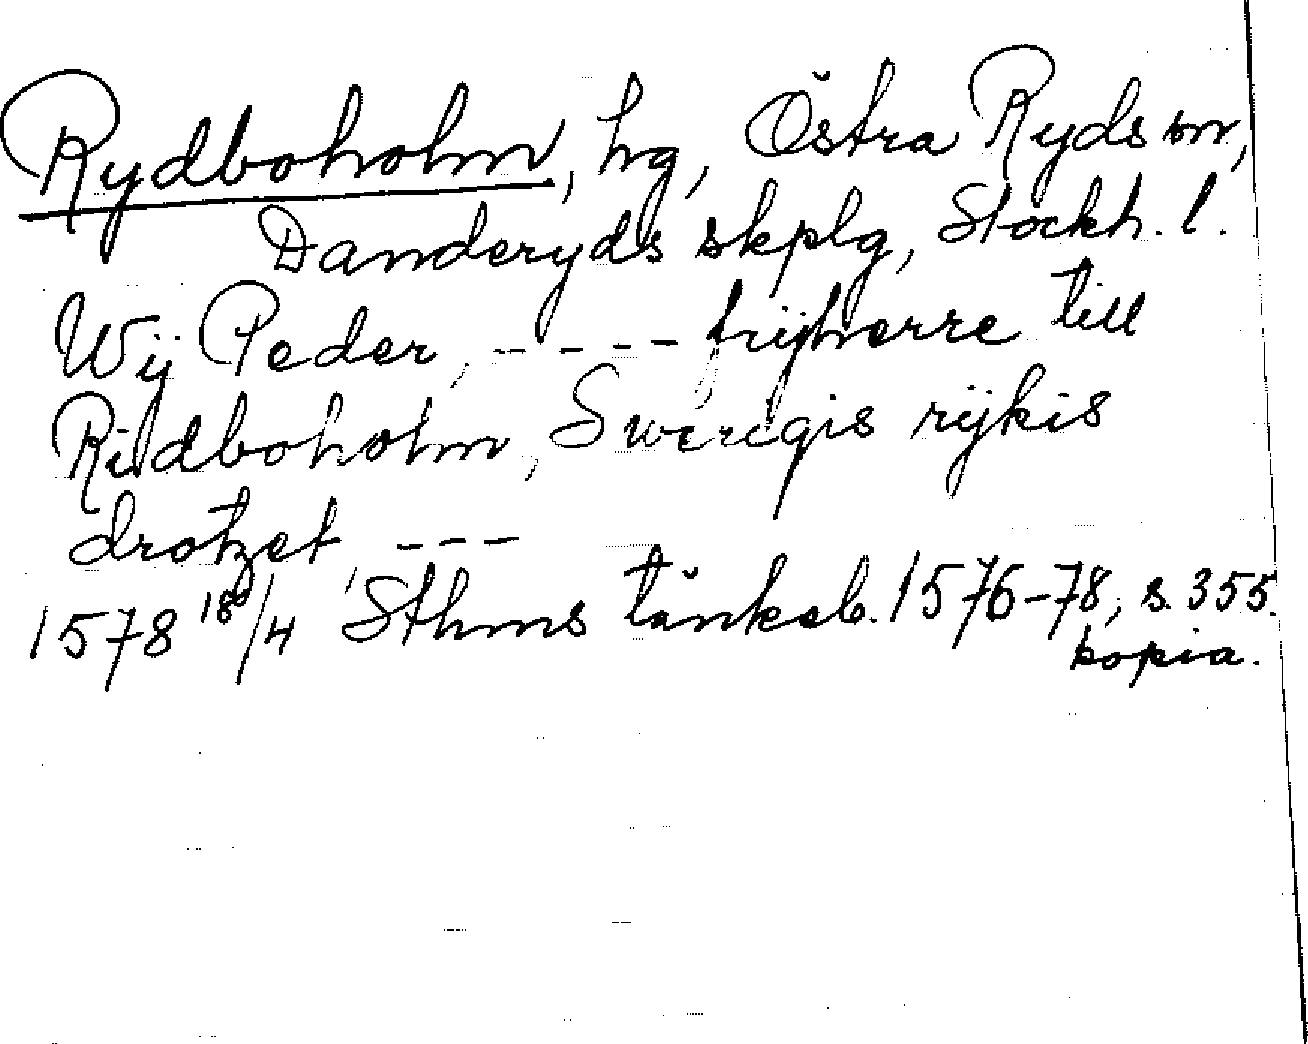 Rydboholm, hg, Östra Ryds sn,
Danderyds skplg, Stockh. l.
Wij Peder, ---- frijherre till
Ridboholm, Sweregis rijkis
drotzet, ---
1578 18/4 Sthms tänkeb. 1576-78, s. 355.
kopia.